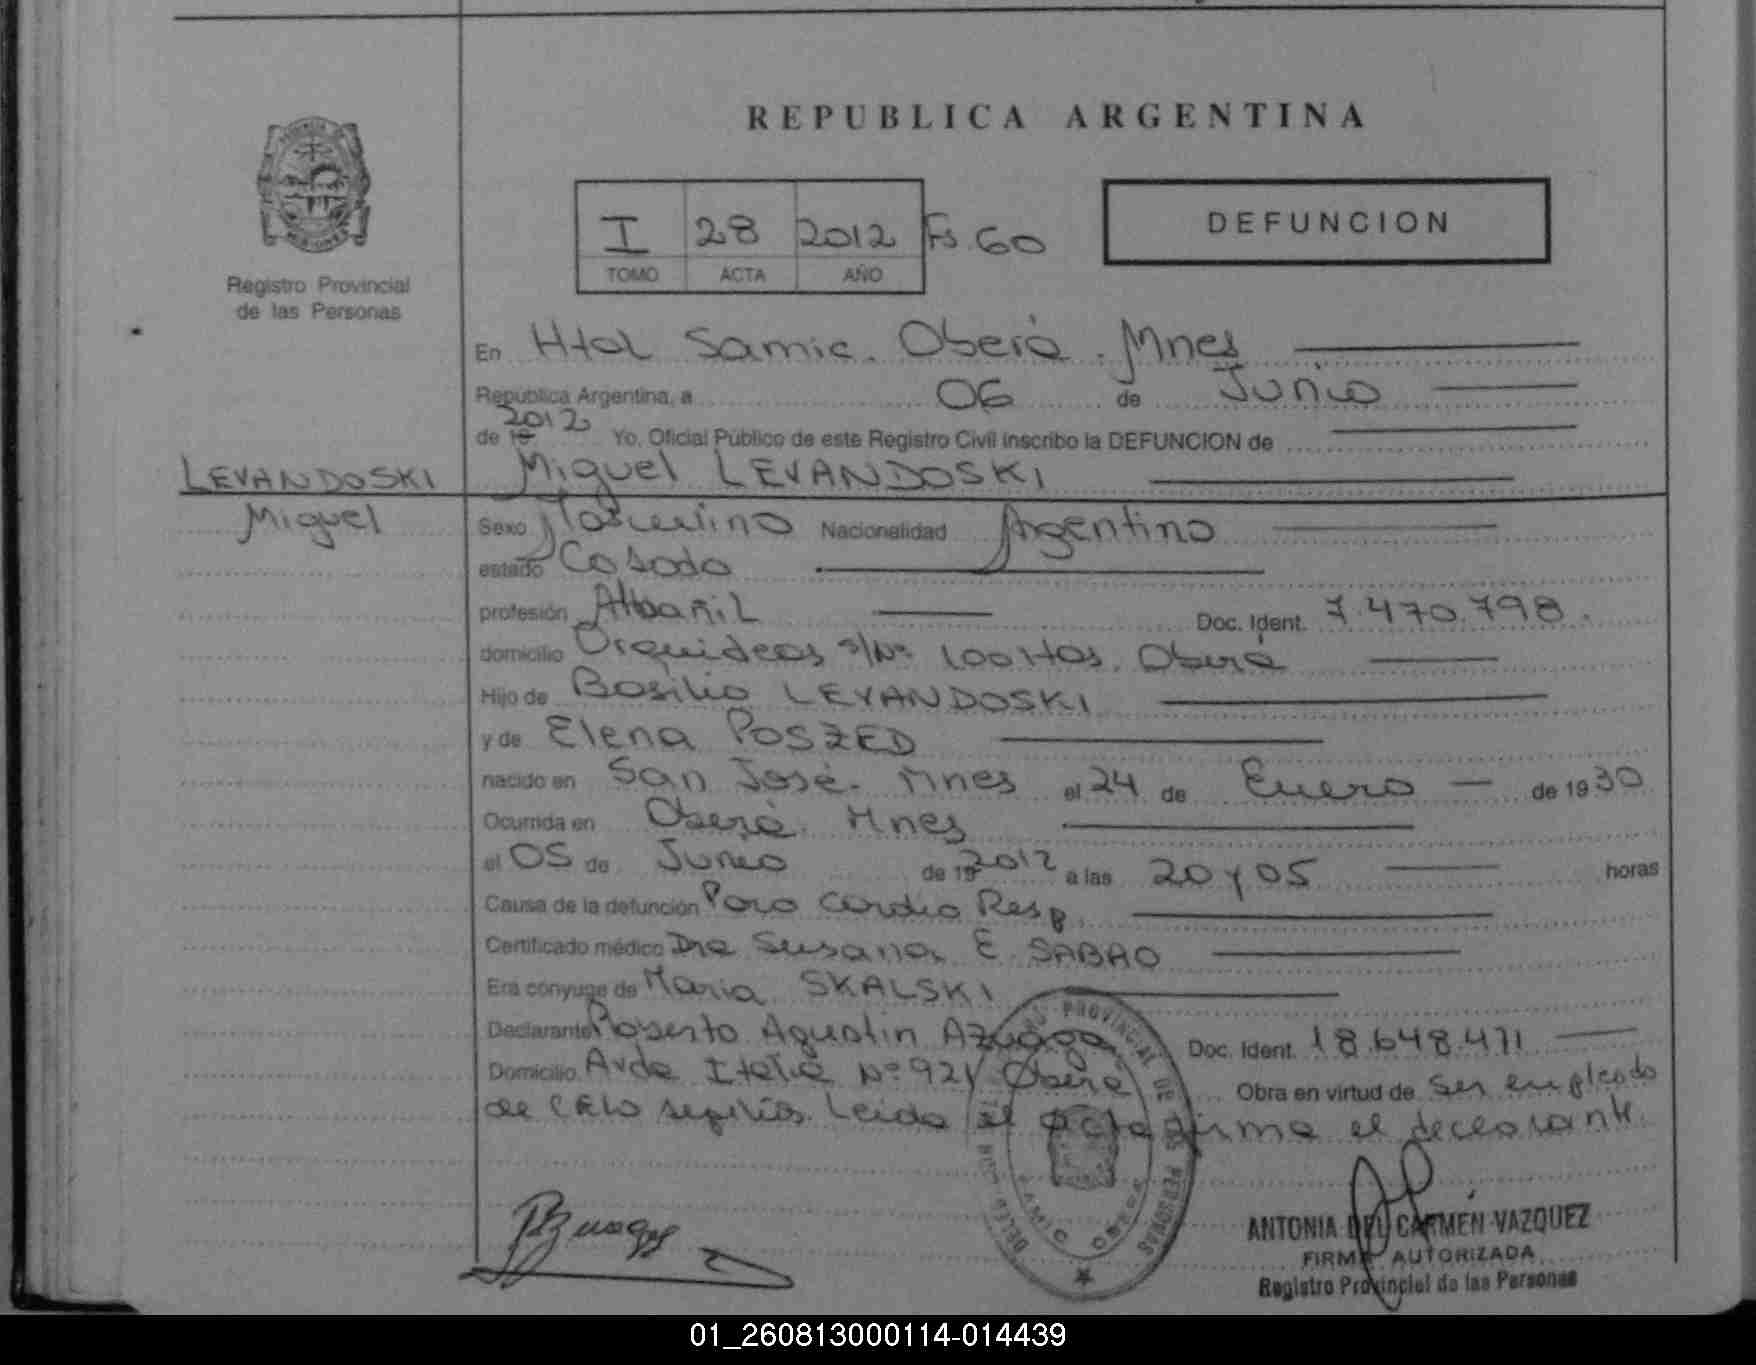 REPUBLICA ARGENTINA
I 28 2012 Fs. 60
TOMO ACTA AÑO
DEFUNCION
Registro Provincial
de las Personas
En Htal Samic. Oberá. Mnes
República Argentina, a 06 de Junio
de 19 2012 Yo, Oficial Público de este Registro Civil inscribo la DEFUNCION de
LEVANDOSKI
Miguel
Miguel LEVANDOSKI
Sexo Masculino Nacionalidad Argentino
estado Casado
profesión Albañil Doc. Ident. 7.470.798.
domicilio Orquideas s/Nº 100 Has. Oberá
Hijo de Basilio LEVANDOSKI
y de Elena POSZED
nacido en San José. Mnes el 24 de Enero de 1930
Ocurrida en Oberá. Mnes
el 05 de Junio de 19 2012 a las 20 y 05 horas
Causa de la defunción Paro Cardio Resp.
Certificado médico Dra Susana E. SABAO
Era cónyuge de Maria SKALSKI
Declarante Roberto Agustin Azuaga Doc. Ident. 18.648.471
Domicilio Avda Italia Nº 921 Oberá Obra en virtud de Ser empleado
de CELO sepelios. Leída el acta firma el declarante.
PROVINCIAL DE LAS PERSONAS
SAMIC OBERA
ANTONIA DEL CARMEN VAZQUEZ
FIRMA AUTORIZADA
Registro Provincial de las Personas
01_260813000114-014439